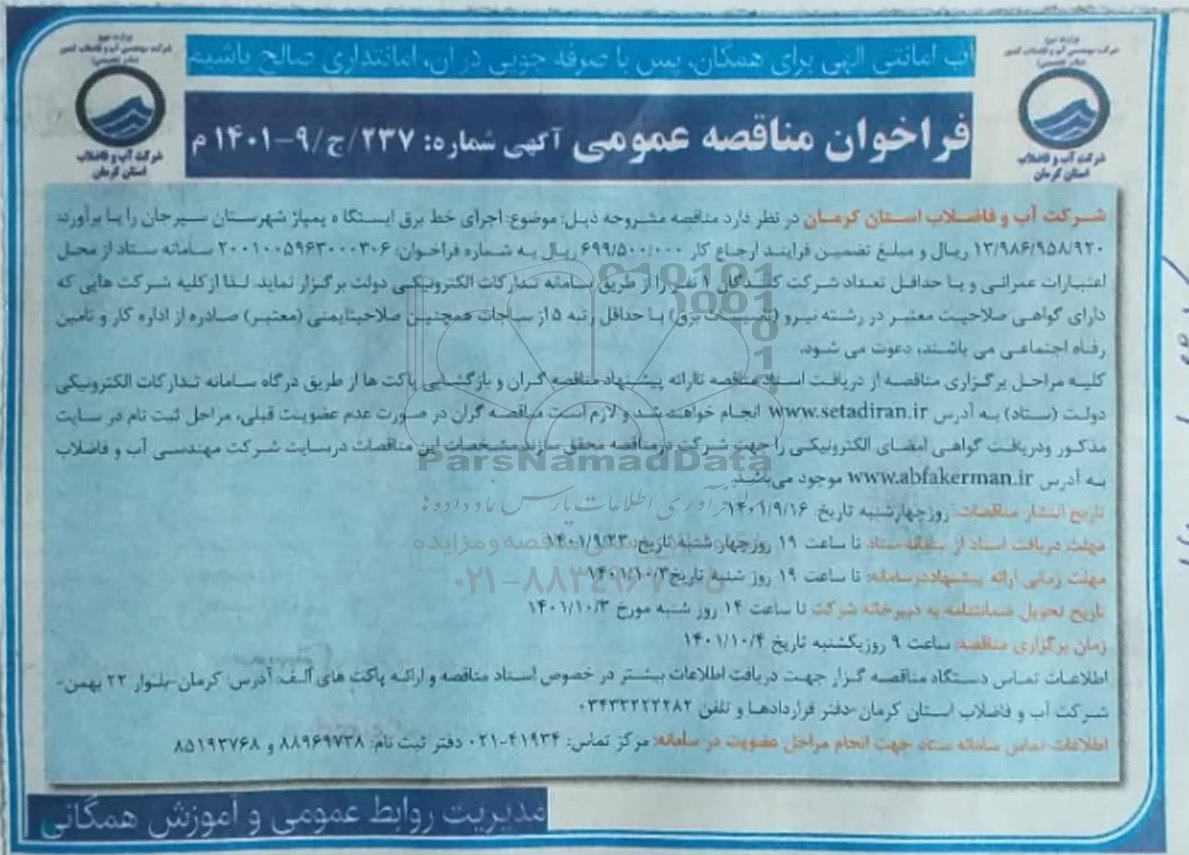 آب امانتی الهی برای همگان، پس با صرفه جویی در آن، امانتداری صالح باشیم
وزارت نیرو
شرکت مهندسی آب و فاضلاب کشور
شرکت آب و فاضلاب
استان کرمان
وزارت نیرو
شرکت مهندسی آب و فاضلاب کشور
شرکت آب و فاضلاب
استان کرمان
فراخوان مناقصه عمومی آگهی شماره: ۲۳۷/ج/۹-۱۴۰۱ م
شرکت آب و فاضلاب استان کرمان در نظر دارد مناقصه مشروحه ذیل: موضوع: اجرای خط برق ایستگاه پمپاژ شهرستان سیرجان را با برآورد:
۱۳/۹۸۶/۹۵۸/۹۲۰ ریال و مبلغ تضمین فرایند ارجاع کار ۶۹۹/۵۰۰/۰۰۰ ریال به شماره فراخوان: ۲۰۰۱۰۰۵۹۶۳۰۰۰۳۰۶ سامانه ستاد از محل
اعتبارات عمرانی و با حداقل تعداد شرکت کنندگان ۱ نفر را از طریق سامانه تدارکات الکترونیکی دولت برگزار نماید. لذا از کلیه شرکت هایی که
دارای گواهی صلاحیت معتبر در رشته نیرو (تاسیسات برق) با حداقل رتبه ۵ از ساجات همچنین صلاحیتایمنی (معتبر) صادره از اداره کار و تامین
رفاه اجتماعی می باشند، دعوت می شود.
کلیه مراحل برگزاری مناقصه از دریافت اسناد مناقصه تاارائه پیشنهاد مناقصه گران و بازگشایی پاکت ها از طریق درگاه سامانه تدارکات الکترونیکی
دولت (ستاد) به آدرس www.setadiran.ir انجام خواهد شد و لازم است مناقصه گران در صورت عدم عضویت قبلی، مراحل ثبت نام در سایت
مذکور ودریافت گواهی امضای الکترونیکی را جهت شرکت درمناقصه محقق سازند.مشخصات این مناقصات درسایت شرکت مهندسی آب و فاضلاب
به آدرس www.abfakerman.ir موجود می‌باشد.
تاریخ انتشار مناقصات: روزچهارشنبه تاریخ: ۱۴۰۱/۹/۱۶
مهلت دریافت اسناد از سامانه ستاد تا ساعت ۱۹ روزچهارشنبه تاریخ: ۱۴۰۱/۹/۲۳
مهلت زمانی ارائه پیشنهاددرسامانه: تا ساعت ۱۹ روز شنبه تاریخ ۱۴۰۱/۱۰/۳
تاریخ تحویل ضمانتنامه به دبیرخانه شرکت تا ساعت ۱۴ روز شنبه مورخ ۱۴۰۱/۱۰/۳
زمان برگزاری مناقصه: ساعت ۹ روزیکشنبه تاریخ ۱۴۰۱/۱۰/۴
اطلاعات تماس دستگاه مناقصه گزار جهت دریافت اطلاعات بیشتر در خصوص اسناد مناقصه و ارائه پاکت های الف: آدرس: کرمان-بلوار ۲۲ بهمن-
شرکت آب و فاضلاب استان کرمان-دفتر قراردادها و تلفن ۰۳۴۳۳۲۲۲۲۸۲
اطلاعات تماس سامانه ستاد جهت انجام مراحل عضویت در سامانه: مرکز تماس: ۴۱۹۳۴-۰۲۱ دفتر ثبت نام: ۸۸۹۶۹۷۳۸ و ۸۵۱۹۳۷۶۸
مدیریت روابط عمومی و آموزش همگانی
ParsNamadData
فرآوری اطلاعات پارس نماد داده‌ها